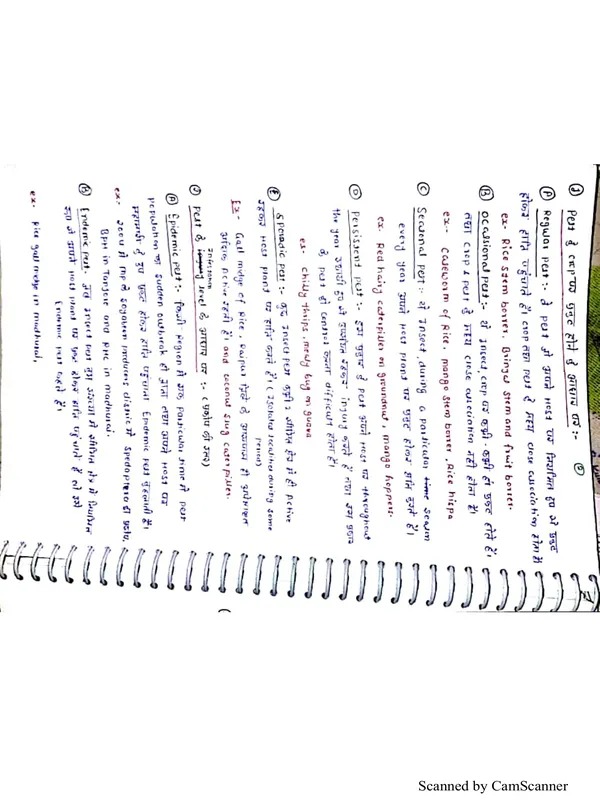 ① Pest के crop पर प्रकट होने के आधार पर :-
Ⓐ Regular pest :- वे pest जो अपने Host पर नियमित रूप से प्रकट
होकर हानि पहुंचाते हैं। crop तथा pest के मध्य close association होता है
ex- Rice stem borrer, Brinjal stem and fruit borrer.
Ⓑ Occassional pest :- वे insect, crop पर कभी-कभी ही प्रकट होते हैं।
तथा crop व pest के मध्य close association नहीं होता है।
ex- Caseworm of Rice, mango stem borrer, Rice hispa
Ⓒ Seasonal pest :- वे insect, during a particular season
every year अपने Host plant पर प्रकट होकर हानि करते हैं।
ex. Red hairy caterpiller on groundnut, mango hoppers.
Ⓓ Persistent pest :- इस प्रकार के pest अपने Host पर throughout
the year उपस्थित रहकर injury करते हैं तथा इस प्रकार
के pest को control करना difficult होता है।
ex- chilly thrips, mealy bug on guava
Ⓔ Sporadic pest :- कुछ Insect pest कभी-2 सक्रिय रूप से ही Active
रहकर Host plant पर हानि करते हैं। (Isolated localities during some
period)
Ex- Gall midge of Rice,
Active रहती है। and coconut slug caterpiller.
② Pest के Infestation level के आधार पर :- (प्रकोप की स्तर)
Ⓐ Epidemic pest :- किसी Region में एक Particular time में pest
population का sudden outbreak हो जाता तथा अपने Host पर
हानि पहुंचाना Epidemic pest कहलाती है।
ex. 2000 में m.p के soyabean producers district में spodoptera का
BPH in Tanjore and RHC in madhurai.
Ⓑ Endemic pest :- जब Insect pest कम संख्या में सीमित क्षेत्र में नियमित
रूप से अपने Host plant पर प्रकट होकर हानि पहुंचाते हैं तो उसे
Endemic pest कहते हैं।
ex- Rice gall midge in madhurai.
Scanned by CamScanner